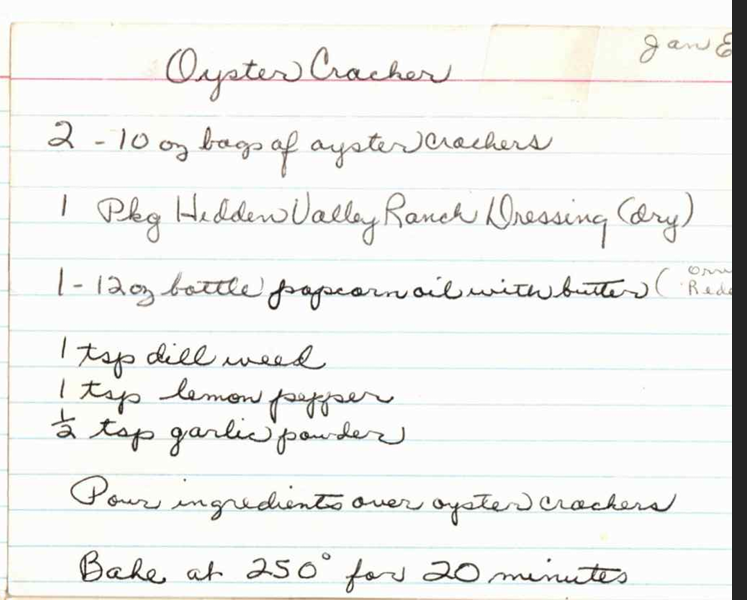 Jan
Oyster Cracker
2 - 10 oz bags of oyster crackers
1 Pkg Hidden Valley Ranch Dressing (dry)
1 - 12 oz bottle popcorn oil with butter (
1 tsp dill weed
1 tsp lemon pepper
½ tsp garlic powder
Pour ingredients over oyster crackers
Bake at 250° for 20 minutes